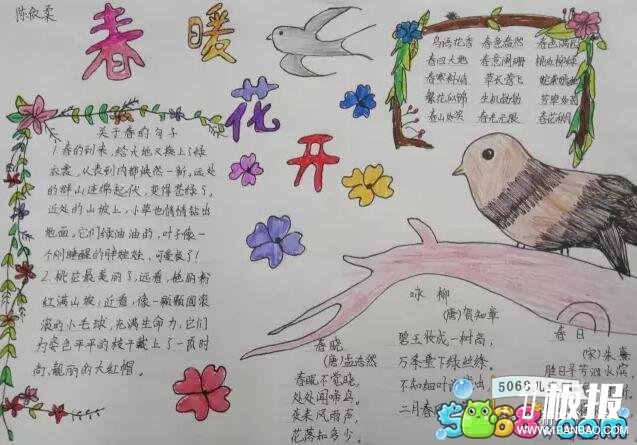 陈欣柔
春暖
花开
鸟语花香 春意盎然 春色满园
春回大地 春意阑珊 桃红柳绿
春寒料峭 草长莺飞
繁花似锦 生机勃勃
春光无限
关于春的句子
1.春的到来,给大地又换上了绿
衣裳,从表到内都焕然一新。远处
的群山连绵起伏,变得苍绿了。
近处的山坡上,小草也悄悄钻出
地面。它们绿油油的,叶子像一
个刚睡醒的胖娃娃,可爱极了!
2.桃花最美丽了,远看,艳丽粉
红满山坡,近看,像一颗颗圆滚
滚的小毛球,充满生命力,它们
为姿色平平的枝子戴上了一顶时
尚、靓丽的大红帽。
春晓
(唐)孟浩然
春眠不觉晓,
处处闻啼鸟。
夜来风雨声,
花落知多少。
咏柳
(唐)贺知章
碧玉妆成一树高,
万条垂下绿丝绦。
不知细叶
二月春
春日
(宋)朱熹
胜日寻芳泗水滨,
5068儿
板报
5068
WWW.1BANBAO.COM